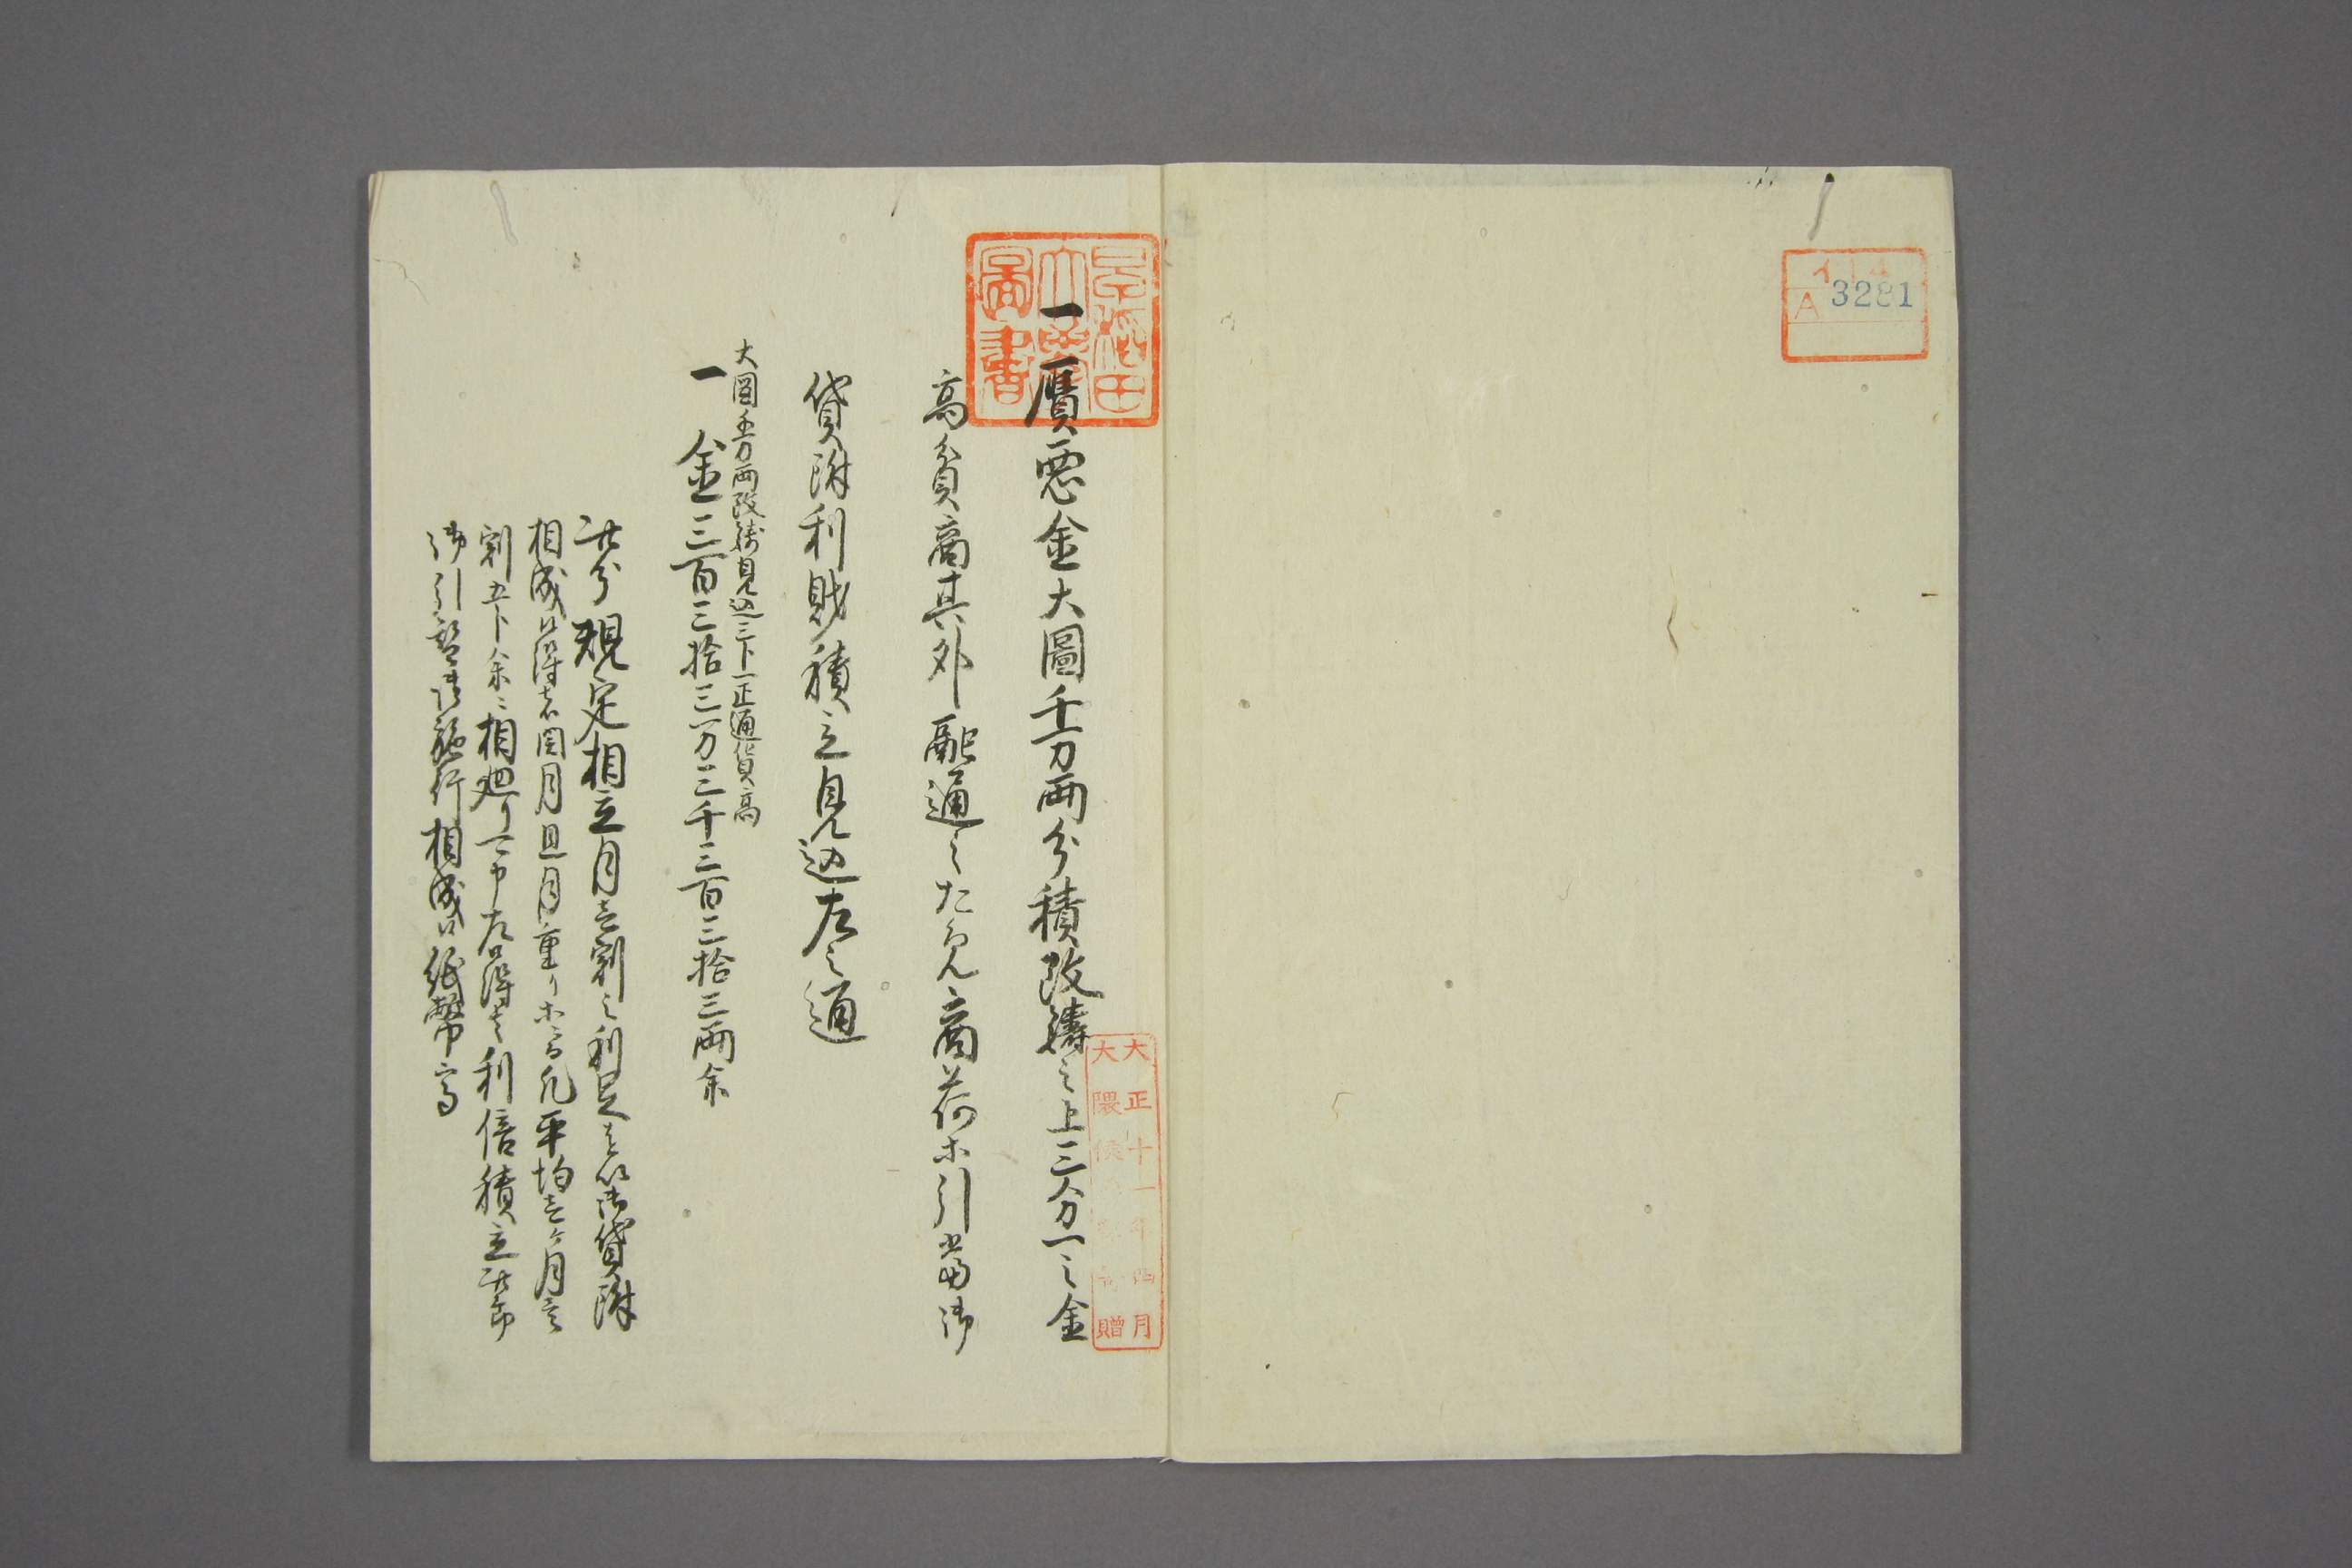 イ14
A 3281
早稲田
大學
圖書
大正十一年四月
大隈侯 贈
一贋悪金大圖千万両分積改鋳之上三分一之金
高貧商其外融通之ため商荷ホ引當御
貸附利財積立見込左之通
大圖千万両改鋳見込三ト一正通貨高
一 金三百三拾三万三千三百三拾三両余
此分規定相立月壱割之利足を以御貸附
相成候得者閏月且月重りホ而凡平均壱ヶ月壱
割五ト余ニ相廻り可申左候得者利倍積立此節
御引替御施行相成候紙幣高